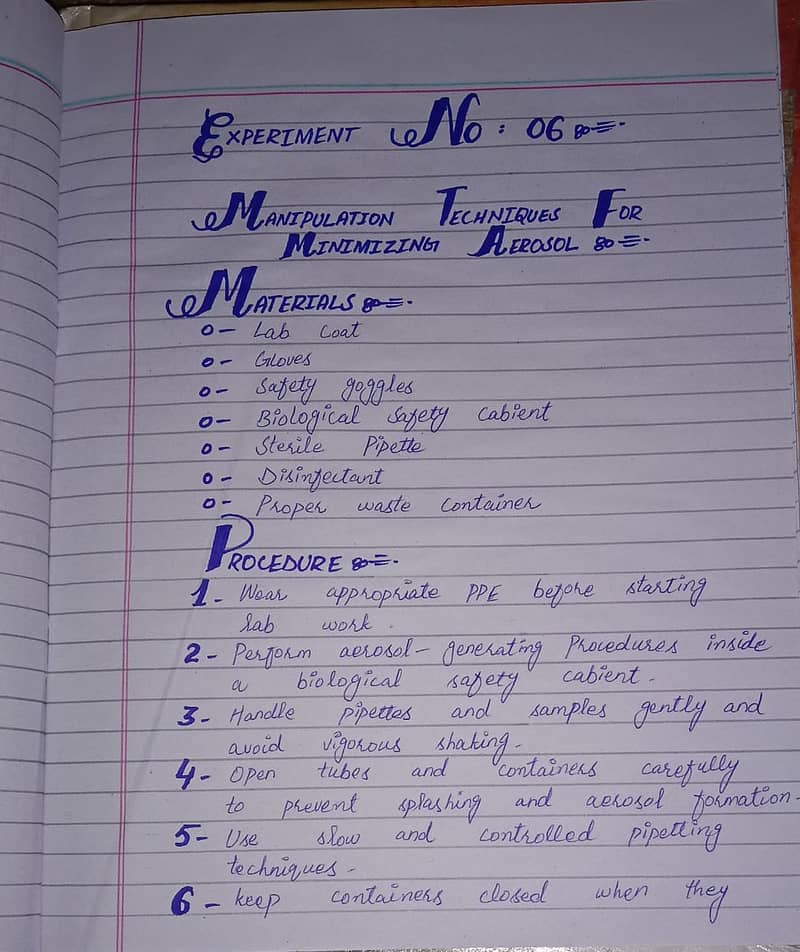 EXPERIMENT No : 06
MANIPULATION TECHNIQUES FOR
MINIMIZING AEROSOL
MATERIALS
o- Lab coat
o- Gloves
o- Safety goggles
o- Biological safety cabient
o- Sterile Pipette
o- Disinfectant
o- Proper waste container
PROCEDURE
1- Wear appropriate PPE before starting
lab work.
2- Perform aerosol-generating Procedures inside
a biological safety cabient.
3- Handle pipettes and samples gently and
avoid vigorous shaking.
4- Open tubes and containers carefully
to prevent splashing and aerosol formation.
5- Use slow and controlled pipetting
techniques.
6- keep containers closed when they